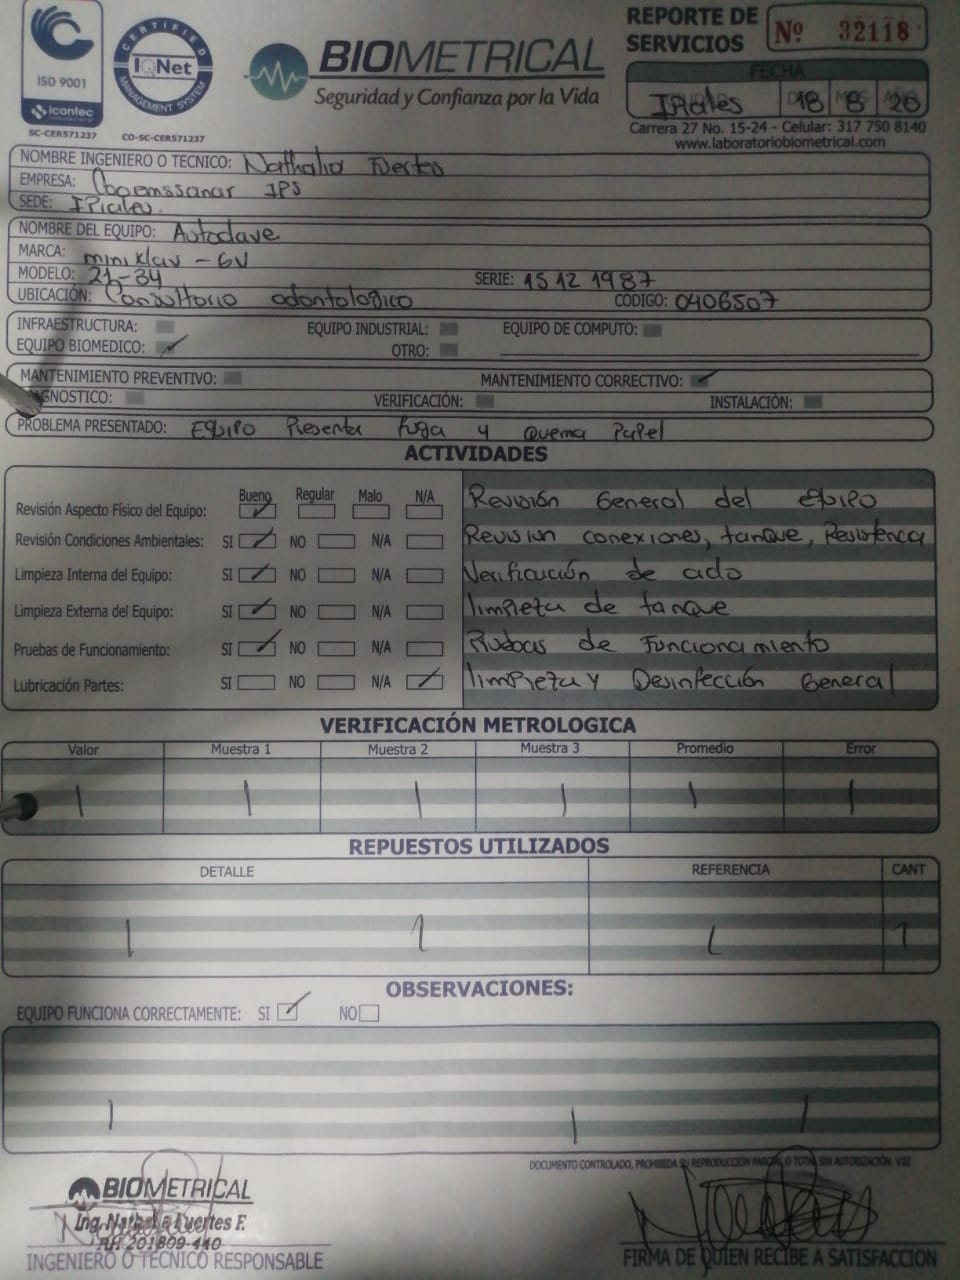 ISO 9001
icontec
SC-CER571237
CERTIFIED
IQNet
MANAGEMENT SYSTEM
CO-SC-CER571237
BIOMETRICAL
Seguridad y Confianza por la Vida
REPORTE DE SERVICIOS
Nº 32118
FECHA
Ipiales 18 8 20
Carrera 27 No. 15-24 - Celular: 317 750 8140
www.laboratoriobiometrical.com
NOMBRE INGENIERO O TECNICO: Nathalia Fuertes
EMPRESA: Cooemssanar IPS
SEDE: Ipiales.
NOMBRE DEL EQUIPO: Autoclave
MARCA: miniklav - 6V
MODELO: 21-34 SERIE: 15 12 1987
UBICACIÓN: Consultorio odontologico CODIGO: 0406507
INFRAESTRUCTURA: EQUIPO INDUSTRIAL: EQUIPO DE COMPUTO:
EQUIPO BIOMEDICO: OTRO:
MANTENIMIENTO PREVENTIVO: MANTENIMIENTO CORRECTIVO:
AGNOSTICO: VERIFICACIÓN: INSTALACIÓN:
PROBLEMA PRESENTADO: Equipo Presenta fuga y quema Papel
ACTIVIDADES
Bueno Regular Malo N/A
Revisión Aspecto Físico del Equipo: Revisión General del equipo
Revisión Condiciones Ambientales: SI NO N/A Revision conexiones, tanque, Resistencia
Limpieza Interna del Equipo: SI NO N/A Verificación de ciclo
Limpieza Externa del Equipo: SI NO N/A limpieza de tanque
Pruebas de Funcionamiento: SI NO N/A Pruebas de Funcionamiento
Lubricación Partes: SI NO N/A limpieza y Desinfección General
VERIFICACIÓN METROLOGICA
Valor Muestra 1 Muestra 2 Muestra 3 Promedio Error
REPUESTOS UTILIZADOS
DETALLE REFERENCIA CANT
OBSERVACIONES:
EQUIPO FUNCIONA CORRECTAMENTE: SI NO
DOCUMENTO CONTROLADO, PROHIBIDA SU REPRODUCCIÓN PARCIAL O TOTAL SIN AUTORIZACIÓN.
BIOMETRICAL
Ing. Nathalia Fuertes F.
RH 201809-440
INGENIERO O TECNICO RESPONSABLE FIRMA DE QUIEN RECIBE A SATISFACCION